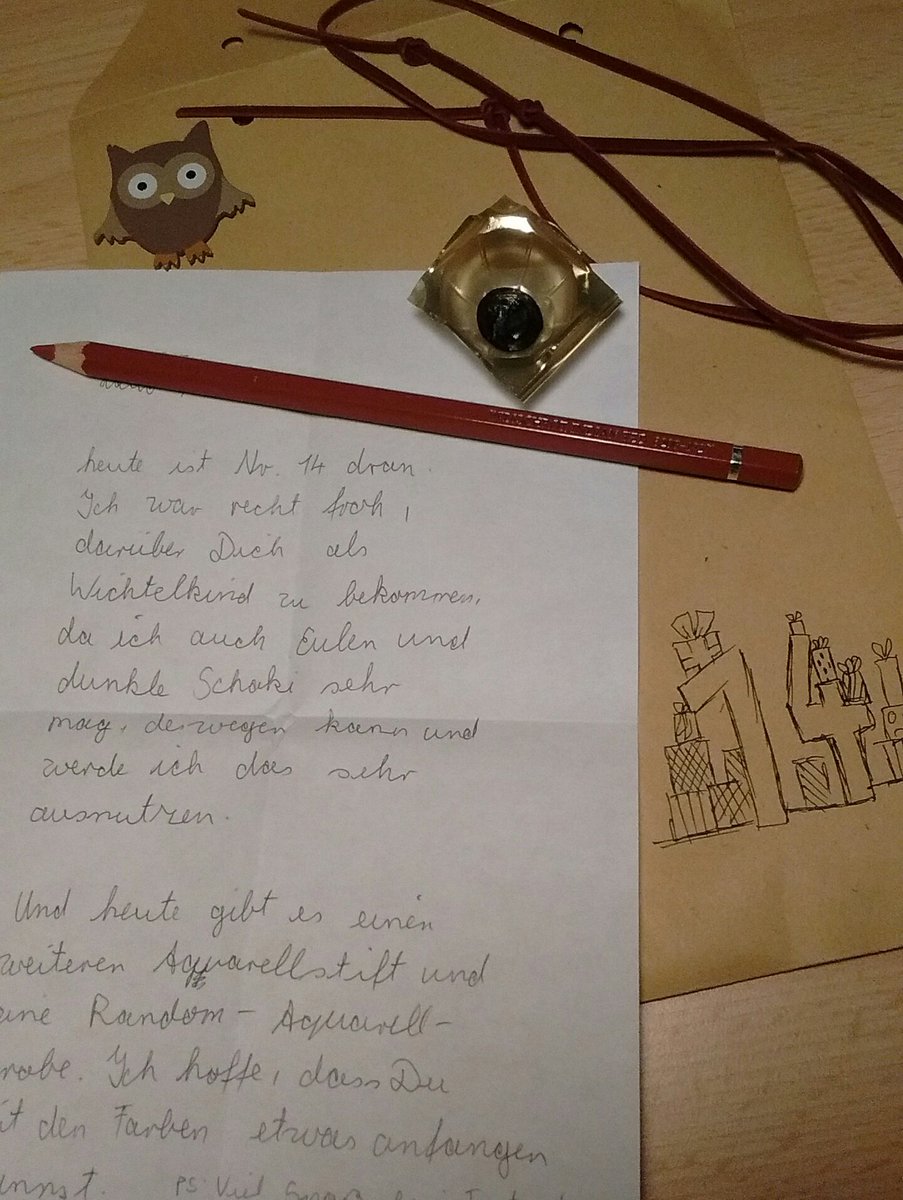 heute ist Nr. 14 dran.
Ich war recht froh,
darüber Dich als
Wichtelkind zu bekommen,
da ich auch Eulen und
dunkle Schoki sehr
mag, deswegen kann und
werde ich das sehr
ausnutzen.
Und heute gibt es einen
weiteren Aquarellstift und
eine Random-Aquarell-
robe. Ich hoffe, dass Du
it den Farben etwas anfangen
annst. PS: Viel Spaß
14